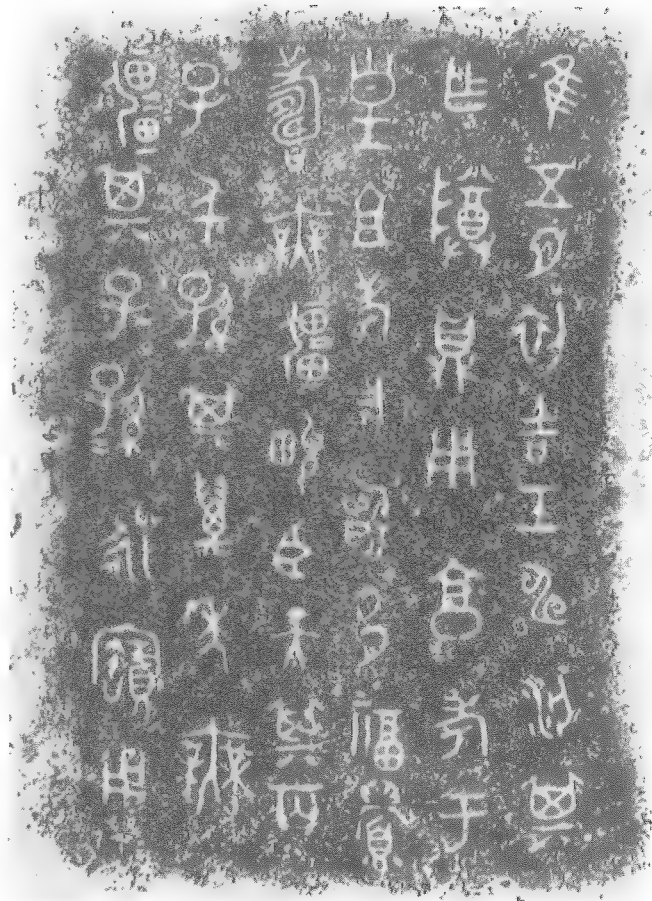 隹五月初吉壬申梁其
乍尊鼎用享孝于
皇且考用祈多福眉
壽無疆畯臣天其百
子千孫其萬年無
疆其子孫永寶用